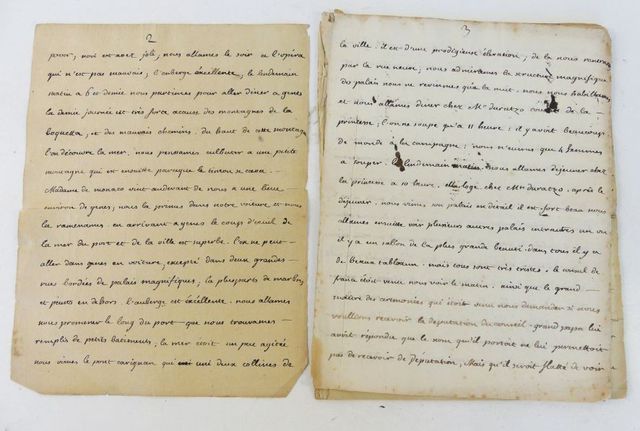 2
pour, novi est assez joli, nous allames le soir a l'opera
qui n'est pas mauvais, l'auberge éxcellente, le lendemain
matin a 6 et demie nous partimes pour aller diner a genes
la demie journée est très forte acause des montagnes de la
boquetta, et des mauvais chemins. du haut de cette montagne
l'on découvre la mer, nous pensames culbuter a une petite
montagne qui est ensuite parceque le timon se cassa.
Madame de monaco vint audevant de nous a une lieue
environ de genes; nous la primes dans notre voiture, et nous
la ramenames. en arrivant a genes le coup d'oeuil de
la mer du port et de la ville est superbe. l'on ne peut
aller dans genes en voiture, excepté dans deux grandes
rues bordées de palais magnifiques, la plusparts de marbre,
et peints en dehors. l'auberge est éxcellente. nous allames
nous promener le long du port que nous trouvames
remplis de petits batiments, la mer étoit un peu agitée
nous vimes le pont carignan qui uni deux collines de
3
la ville. il est d'une prodigieuse élevation, de la nous
par la rue neuve; nous admirames la structure magnifique
des palais nous ne revinmes que la nuit. nous nous habillames
et nous allames diner chez Mr durazzo de la
princesse, l'on ne soupe qu'a 11 heure, il y avoit beaucoup
de monde a la campagne, nous n'eumes que 4 femmes
a souper. le lendemain matin nous allames déjeuner chez
la princesse a 10 heure, logé chez Mr durazzo. après le
déjeuner, nous vimes son palais en détail il est fort beau nous
allames ensuite voir plusieurs autres palais entreautres un ou
il y a un sallon de la plus grande beauté. dans tous il y a
de beaux tableaux. mais tous sont très tristes. le consul de
france étoit venu nous voir le matin. ainsi que le grand
maitre des ceremonies qui étoit venu nous demander si nous
voulions recevoir la deputation du conseil. grand papa lui
avoit répondu que le nom qu'il portoit ne lui permettoit
pas de recevoir de députation, Mais qu'il seroit flatté de voir